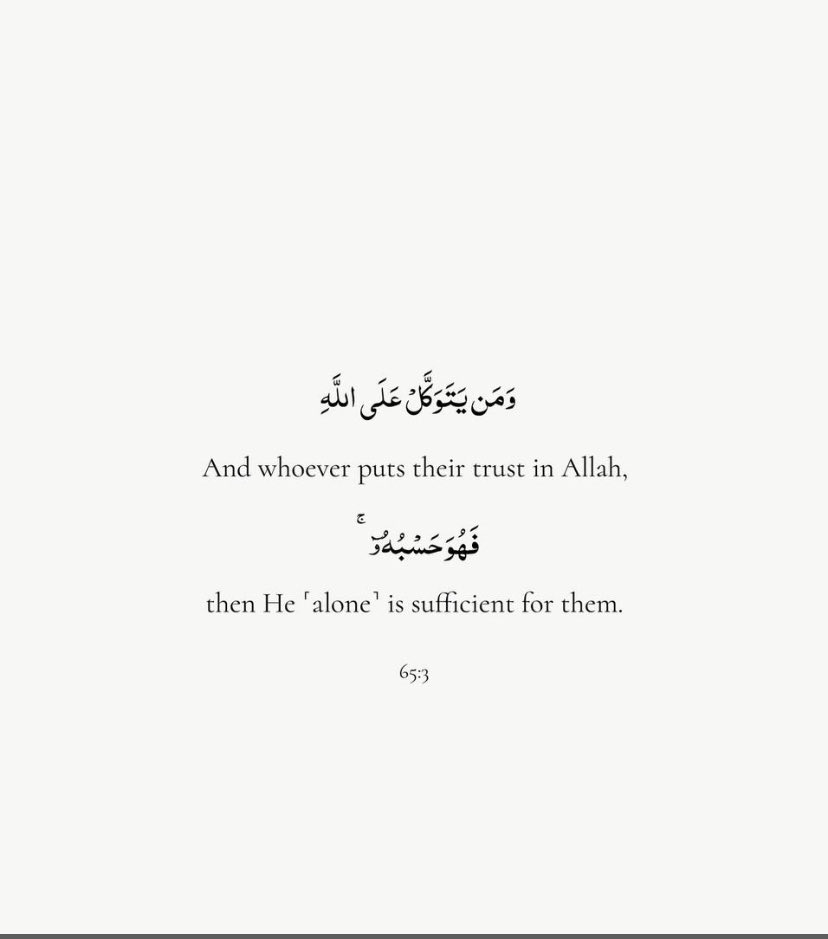 وَمَن يَتَوَكَّلْ عَلَى اللَّهِ
And whoever puts their trust in Allah,
فَهُوَ حَسْبُهُۥٓ ۚ
then He ˹alone˺ is sufficient for them.
65:3